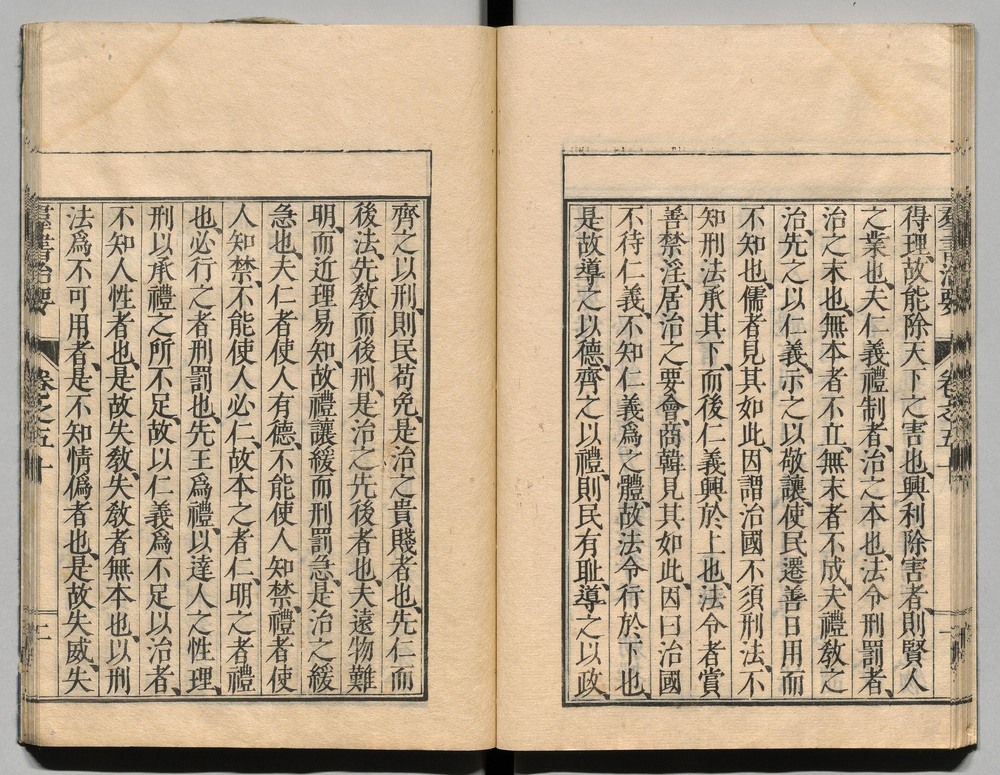 羣書治要 卷之五十 一
得理、故能除天下之害也、興利除害者、則賢人
之業也、夫仁義禮制者、治之本也、法令刑罰者、
治之末也、無本者不立、無末者不成、夫禮敎之
治、先之以仁義、示之以敬讓、使民遷善日用而
不知也、儒者見其如此、因謂治國不須刑法、不
知刑法承其下、而後仁義興於上也、法令者賞
善禁淫、居治之要會、商韓見其如此、因曰治國
不待仁義、不知仁義爲之體、故法令行於下也、
是故導之以德、齊之以禮、則民有耻、導之以政、
齊之以刑、則民苟免、是治之貴賤者也、先仁而
後法、先敎而後刑、是治之先後者也、夫遠物難
明、而近理易知、故禮讓緩而刑罰急、是治之緩
急也、夫仁者使人有德、不能使人知禁、禮者使
人知禁、不能使人必仁、故本之者仁、明之者禮
也、必行之者刑罰也、先王爲禮、以達人之性理、
刑以承禮之所不足、故以仁義爲不足以治者、
不知人性者也、是故失敎、失敎者無本也、以刑
法爲不可用者、是不知情僞者也、是故失威、失
羣書治要 卷之五十 二